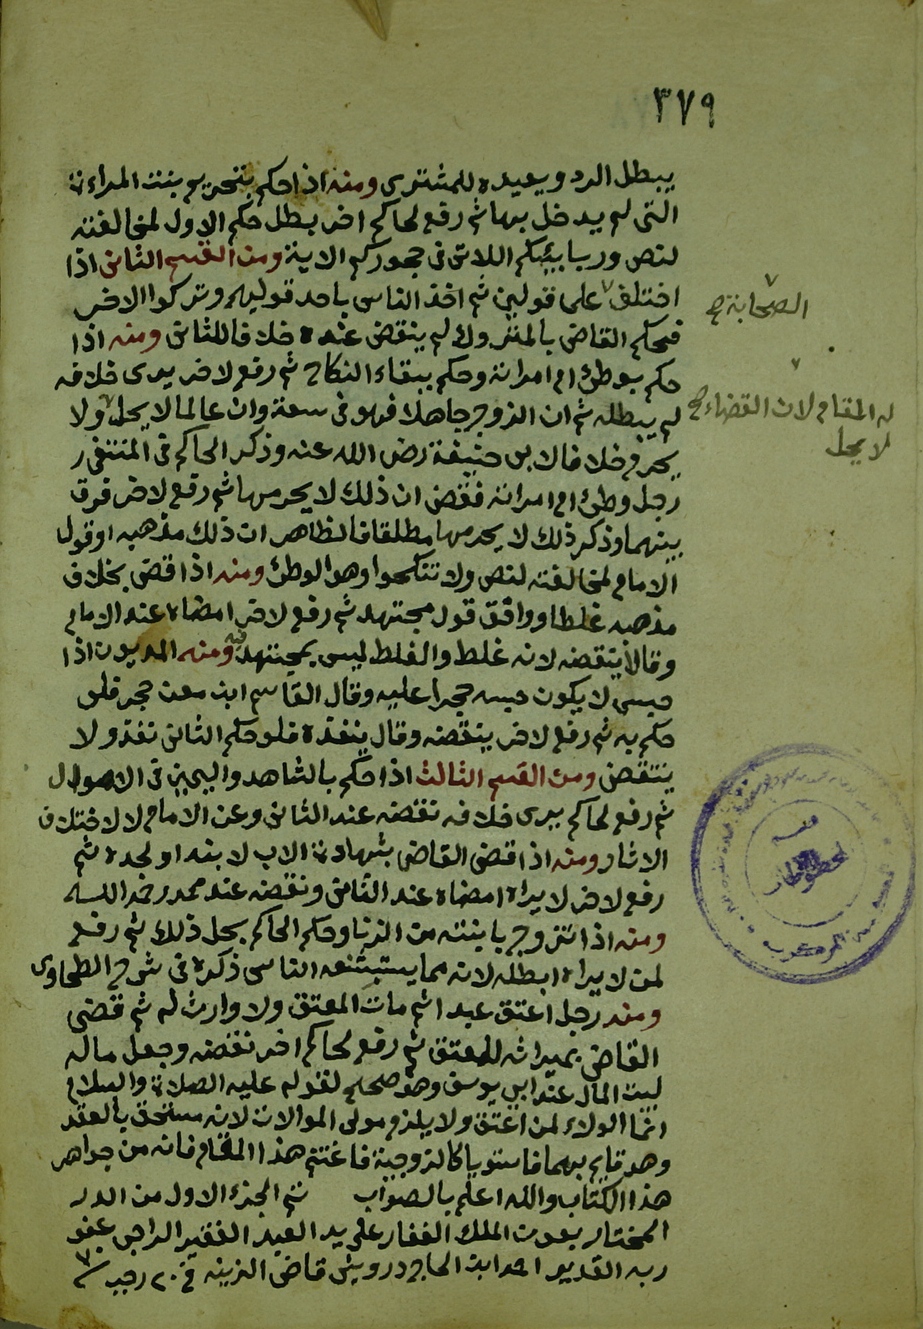 ٣٧٩
يبطل الرد ويعيده للمشتري ومنه اذا حكم بتحريم بنت المراءة
التي لم يدخل بها ثم رفع لحاكم اخر بطل حكم الاول لمخالفته
لنص وربائبكم اللاتي في حجوركم الاية ومن القسم الثاني اذا
اختلف على قولين ثم اخذ الناس باحد قوليهم وتركوا الاخر
الصحابة صح
فحكم القاضي بالمتروك لم ينقض عنده خلافا للثاني ومنه اذا
حكم بوطئ ام امراته وحكم ببقاء النكاح ثم رفع لاخر يرى خلافه
لم يبطله ثم ان الزوج جاهلا فهو في سعة وان عالما لا يحل ولا
له المقام لان القضاء صح
لا يحل
يحرم خلافا لابي حنيفة رضي الله عنه وذكر الحاكم في المنتقى
رجل وطئ ام امراته فقضى ان ذلك لا يحرمها ثم رفع لاخر فرق
بينهما وذكر ذلك لا يحرمها مطلقا فالظاهر ان ذلك مذهبه او قول
الامام لمخالفته لنص ولا تنكحوا وهو الوطئ ومنه اذا قضى بخلاف
مذهبه غلطا ووافق قول مجتهد ثم رفع لاخر امضاه عند الامام
وقالا ينقضه لانه غلط والغلط ليس بمجتهد فيه ومنه المديون اذا
حبس لا يكون حبسه حجرا عليه وقال القاسم ابن معن حجر فلو
حكم به ثم رفع لاخر ينقضه وقال ينفذه فلو حكم الثاني نفذ ولا
ينتقض ومن القسم الثالث اذا حكم بالشاهد واليمين في الاموال
ثم رفع لحاكم يرى خلافه نقضه عند الثاني وعن الامام لا لاختلاف
الاثار ومنه اذا قضى القاضي بشهادة الاب لابنه او لجده ثم
رفع لاخر لا يراه امضاه عند الثاني ونقضه عند محمد رضي الله
ومنه اذا تزوج بابنته من الزنا وحكم الحاكم بحل ذلك ثم رفع
لمن لا يراه ابطله لانه مما يستبشعه الناس ذكره في شرح الطحاوي
ومنه رجل اعتق عبدا ثم مات المعتق ولا وارث له ثم قضى
القاضي بميراثه للمعتق ثم رفع لحاكم اخر نقضه وجعل ماله
لبيت المال عند ابي يوسف وهو صحيح لقوله عليه الصلاة والسلام
انما الولاء لمن اعتق ولا يلزم مولى الموالات لانه مستحق بالعقد
وهو قايم بهما فاستويا كالزوجية فاغتنم هذا المقام فانه من جواهر
هذا الكتاب والله اعلم بالصواب تم الجزء الاول من الدر
المختار بعون الملك الغفار على يد العبد الفقير الراجي عفو
ربه القدير احمد ابن الحاج درويش قاضي الزينه في ٢٠ رجب